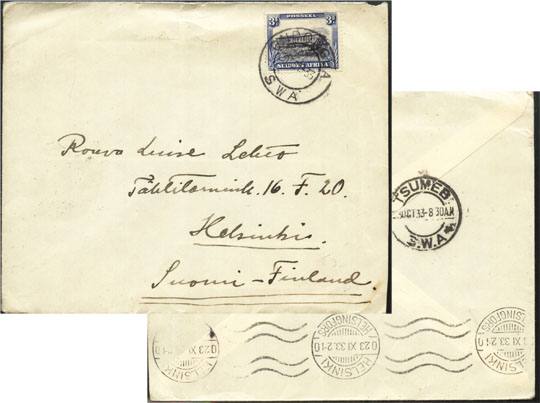 3d POSSEËL 3d
SUIDWES AFRIKA
S.W.A
Rouva Luise Lehto
Tähtitornink. 16. F. 20.
Helsinki.
Suomi - Finland
TSUMEB
OCT 33-8 30AM
S.W.A
HELSINKI HELSINGFORS
23 XI 33.2 10
HELSINKI / HELSINGFORS
23 XI 33.2 10
HELSINKI HELSINGFORS
23 XI 33.2 10